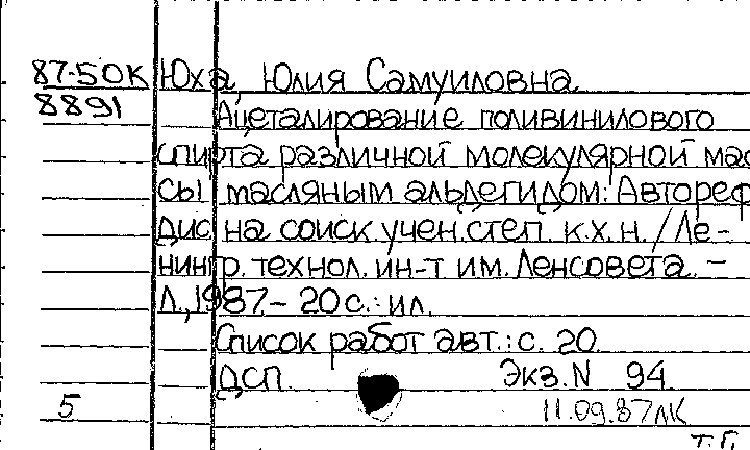 87-50К Юха, Юлия Самуиловна.
8891 Ацеталирование поливинилового
спирта различной молекулярной мас
сы масляным альдегидом: Автореф
дис на соиск. учен. степ. к.х.н. / Ле-
нингр. технол. ин-т им. Ленсовета. -
Л., 1987. - 20 с.: ил.
Список работ авт.: с. 20.
ДСП. Экз. N 94.
5 11.09.87 ЛК